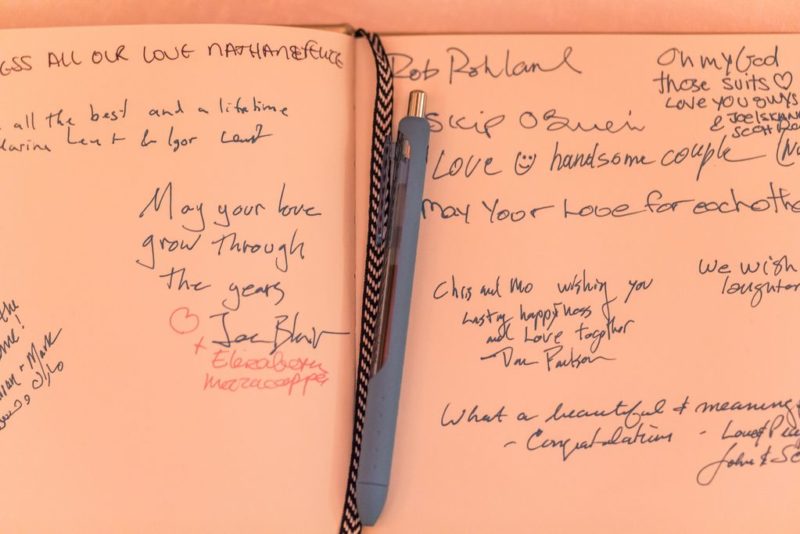 ESS ALL OUR LOVE NATHAN & FELICE
all the best and a lifetime
Marina Lent & Igor Lent
May your love
grow through
the years
+
Elizabeth
the
me!
Mark
Rob Rohland
Skip O'Brien
LOVE ☺ handsome couple
May Your Love for eachothe
Oh my God
those suits ♡
LOVE YOU GUYS
& JOEL
SCOTT
Chris and Mo wishing you
lasting happiness
and love together
We wish
laughter
What a beautiful & meaning
- Congratulations - Love &
John &